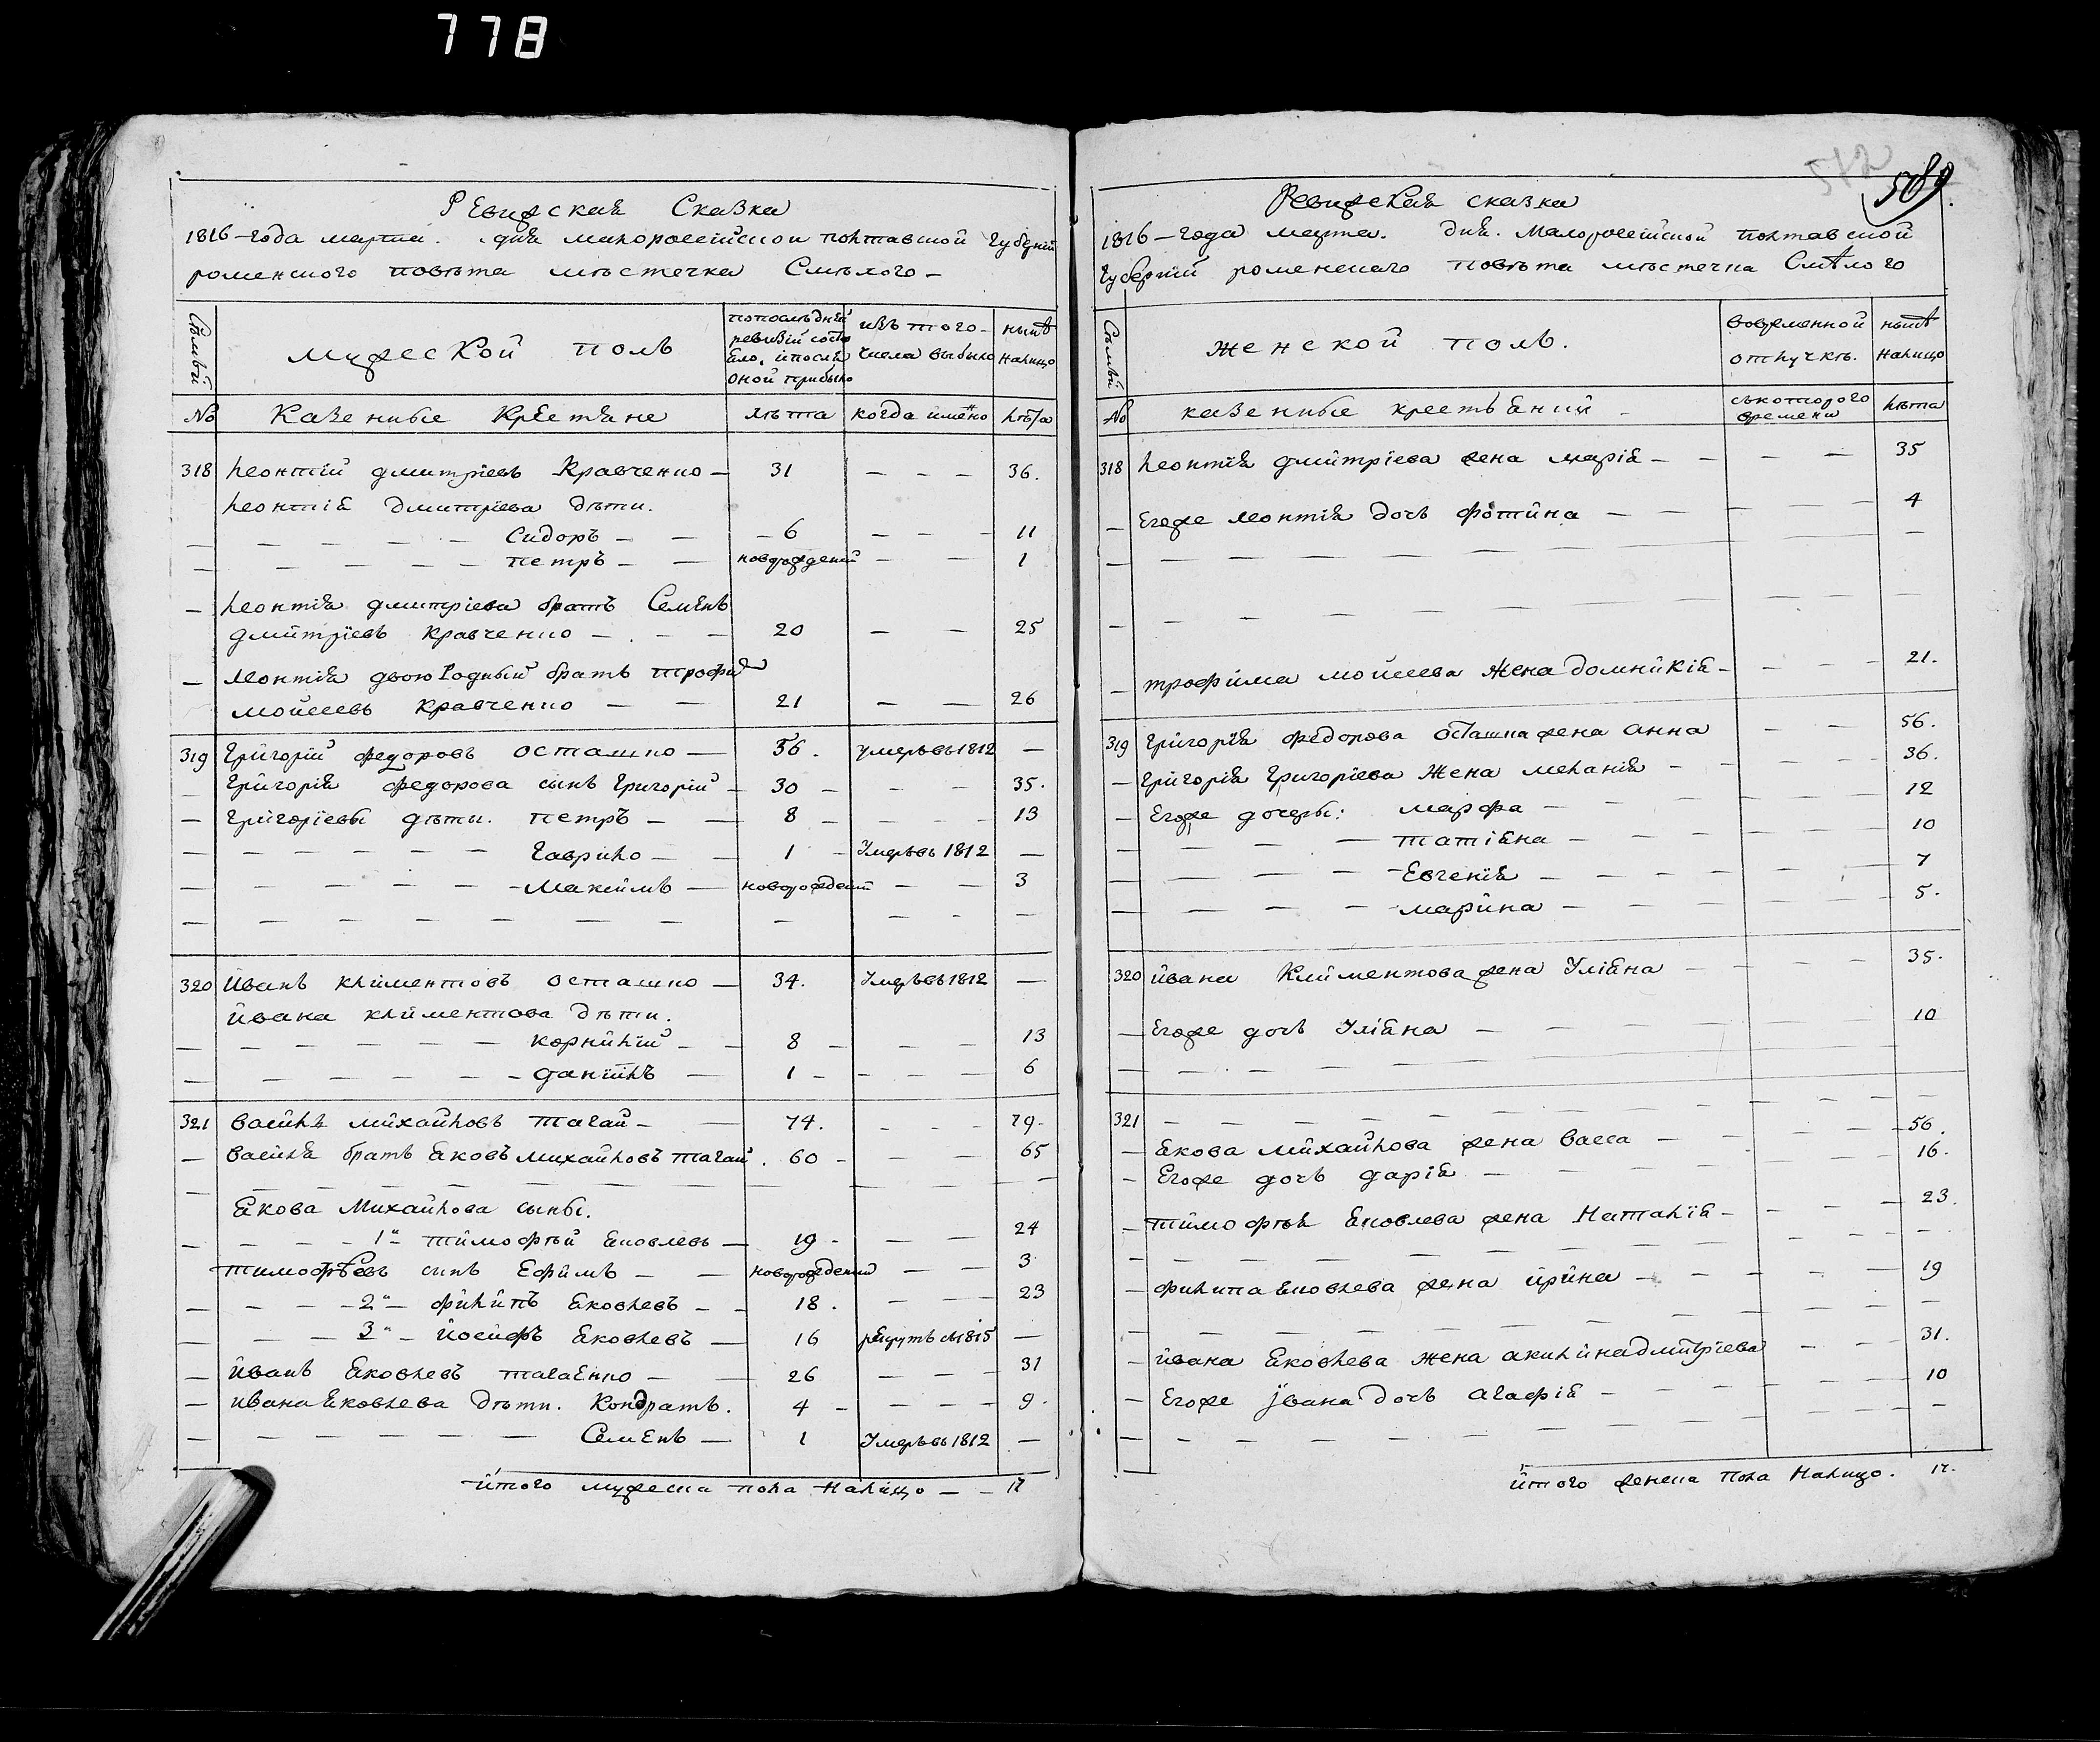 778
Ревижская Сказка
1816-года марта. дня малоросейской полтавской губерний
роменского повѣта мѣстечка Смѣлого-
Семьй
мужеской полъ
попослѣдней
ревизій состо
яло, и послѣ
оной прибыло
изъ того-
числа выбыло
нынѣ
налицо
№ Казеныые Крѣстяне лѣта когда имено лѣта
318 леонтій дмитріевъ Кравченко- 31 - - - 36.
леонтія Дмитріева дѣти.
- - - - - - Сидоръ - - - 6 - - - 11
- - - - - - петръ - - новорожденій - - 1
- леонтія дмитріева братъ Семенъ
дмитріевъ Кравченко - . - - 20 - - 25
- Леонтія двоюродный братъ трофим
мойсеевъ Кравченко - - 21 - - 26
319 Григорій федоровъ осташко - 56. умеръвъ1812 -
- Григорія федорова сынъ Григорій - 30 - - - 35.
- Григоріевы дѣти. петръ - - 8 - - - - 13
- - - - - - - Гаврило - - 1 - Умеръвъ 1812 -
- - - - - - -Максимъ - новорожденій - - 3
- - - - - - - - - - - - -
320 Иванъ климентовъ осташко - 34. Умеръвъ1812 -
Ивана климентова дѣти.
- - - - - - - корнилій - - 8 - - - 13
- - - - - - - данійлъ - 1 - - - - 6
321 василь михайловъ тагай - - 74. - - - 79-
- василя братъ яковъ михайловъ тагай. 60 - - - 65
- - - - - - - - - - - - -
якова Михайлова сыны.
- - - - 1й тимофѣй яковлевъ - 19 - - - 24
тимофѣевъ сынъ Ефимъ - - новорожденій - - 3
- - - -2й- филипъ яковлевъ - - 18. - - - 23
- - - - 3й- йосифъ яковлевъ - 16 рекрутъ в1815 -
- иванъ яковлевъ тагаенко - - 26 - - - 31
- ивана яковлева дѣти. Кондратъ. 4 - - - - 9.
- - - - - - - Семенъ - 1 Умеръвъ 1812 -
итого мужеска пола налицо - - 17
512
589.
Ревижская сказка
1816 - года марта. дня. Малоросейской полтавской
губерній роменскаго повѣта мѣстечка Смѣлого
Семьй
женской полъ.
вовременной
отлучкѣ.
нынѣ
налицо
№ казеныые крестьяний -
съкоторого
времени
лѣта
318 леонтія дмитріева жена марія - - - - 35
- Егоже леонтія дочь фотина - - - - - 4
- - - - - - - - - - -
- - - - - - - - - -
- трофима мойсеева жена домникія - - - - 21.
319 Григорія федорова осташка жена анна - - 56.
- Григорія Григоріева жена меланія - - - - - 36.
- Егоже дочеры: марфа - - - - - 12
- - - - - татіяна - - - - - 10
- - - - - -Евгенія - - - - - 7
- - - - - -марина - - - - - 5.
320 ивана Климентова жена Уліяна - - - - 35.
- Егоже дочь Уліяна - - - - 10
- - - - - - - - - -
321 - - - - - - - - - - -
- якова михайлова жена васса - - - - - 56.
- Егоже дочь дарія - - - - - 16.
- тимофѣя яковлева жена Наталія - - - - 23.
- - - - - - - - - - -
- филипа яковлева жена ирина - - - - - 19
- - - - - - - - - - -
- ивана яковлева жена акилинадмитріева - - 31.
- Егоже ивана дочь агафія - - - - - 10
- - - - - - - - -
итого женска пола налицо. 17.